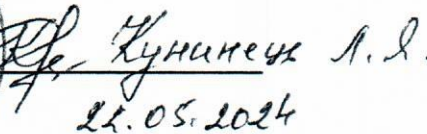 Кунинець Л. Я.
22.05.2024